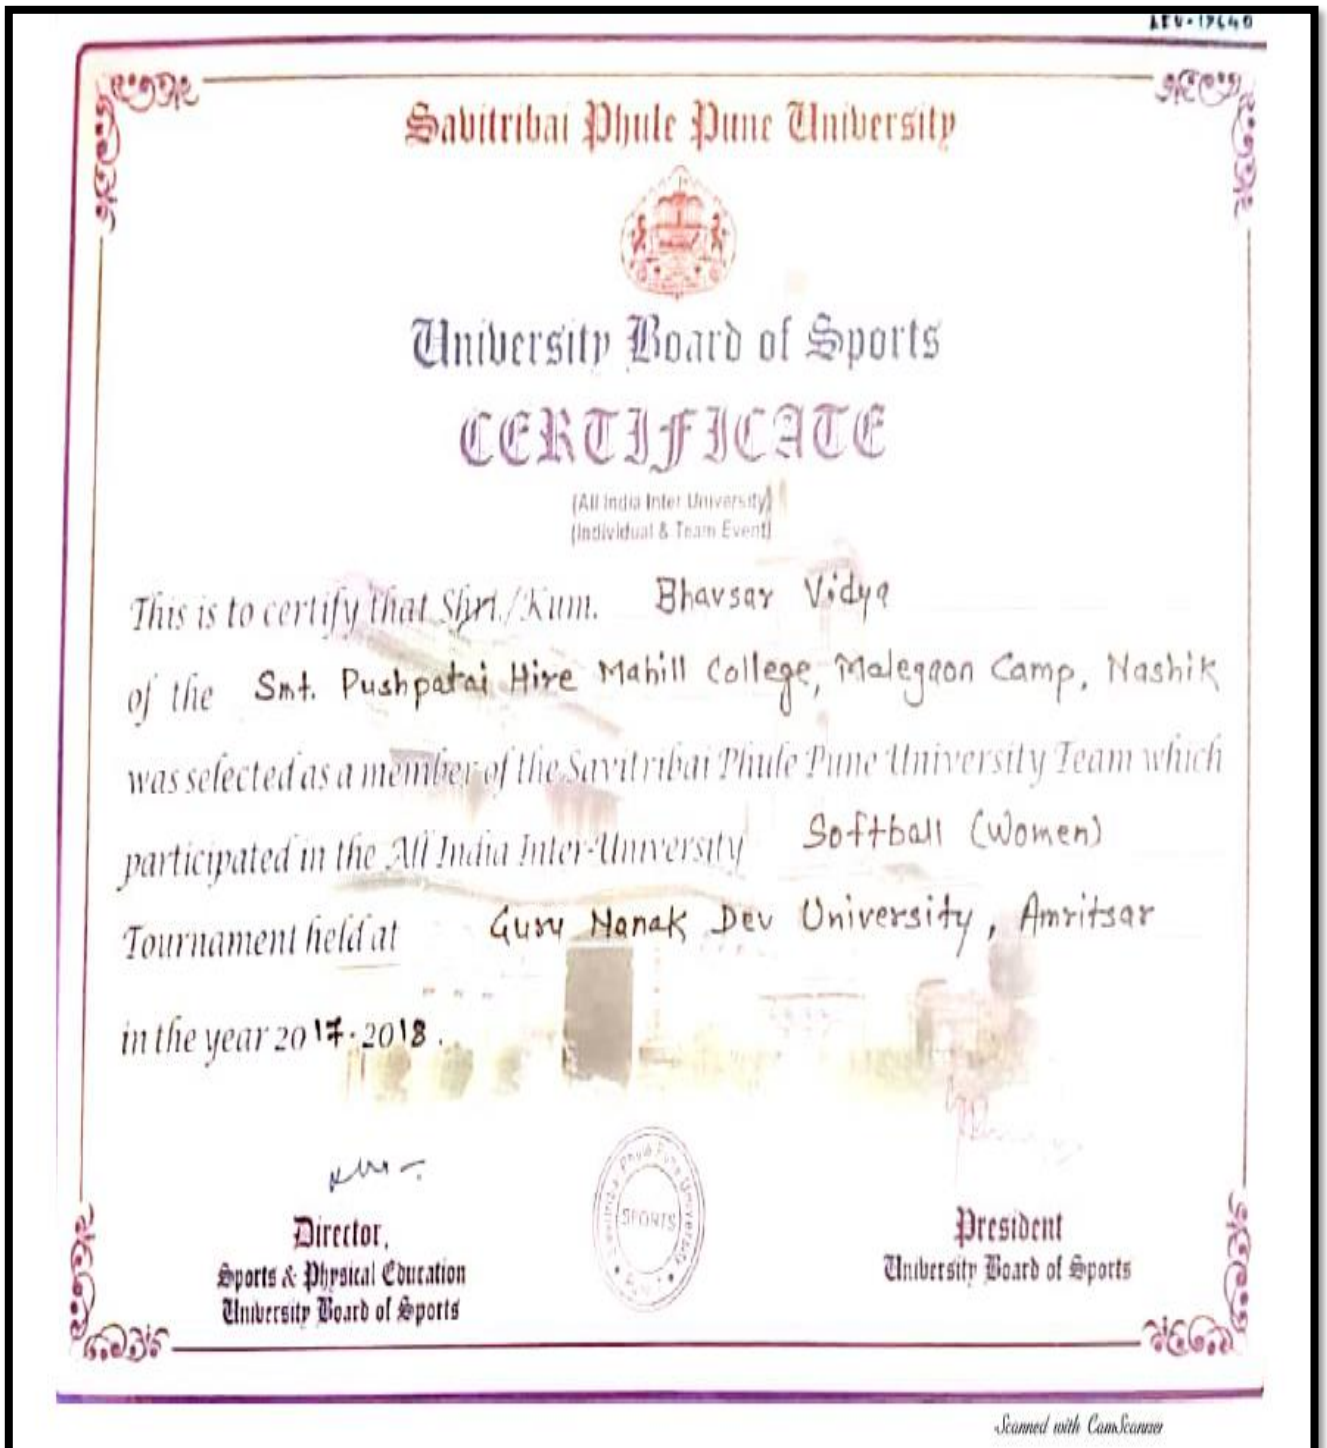 Savitribai Phule Pune University
University Board of Sports
CERTIFICATE
(All India Inter University)
(Individual & Team Event)
This is to certify that Shri./Kum. Bhavsar Vidya
of the Smt. Pushpatai Hire Mahill College, Malegaon Camp, Nashik
was selected as a member of the Savitribai Phule Pune University Team which
participated in the All India Inter-University Softball (Women)
Tournament held at Guru Nanak Dev University, Amritsar
in the year 2017-2018.
Savitribai Phule Pune University
SPORTS
Director,
Sports & Physical Education
University Board of Sports
President
University Board of Sports
Scanned with CamScanner